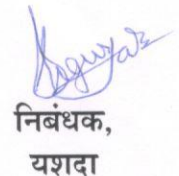 निबंधक,
यशदा